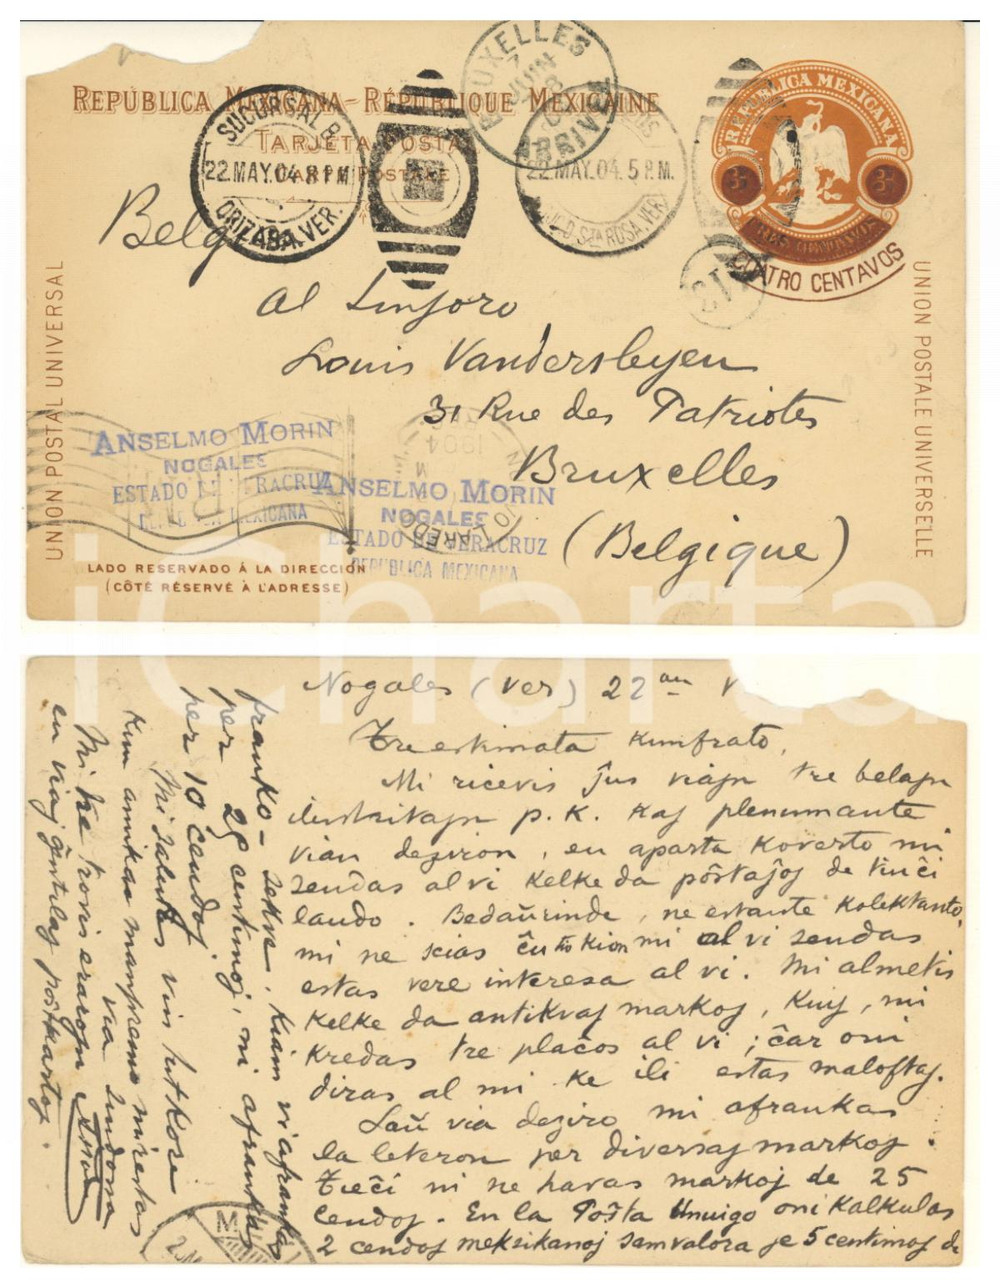 REPÚBLICA MEXICANA-RÉPUBLIQUE MEXICAINE
TARJETA POSTAL
CARTE POSTALE
BRUXELLES
JUIN
ARRIVÉE
SUCURSAL B
22.MAY.04.8 P.M
ORIZABA.VER.
22 MAY.04.5 P.M.
STA ROSA.VER.
REPUBLICA MEXICANA
3 3
TRES CENTAVOS
CUATRO CENTAVOS
UNION POSTAL UNIVERSAL
UNION POSTALE UNIVERSELLE
Belgica
Al Sinjoro
Louis Vandersleyen
31 Rue des Patriotes
Bruxelles
(Belgique)
1904
LAREDO
ANSELMO MORIN
NOGALES
ESTADO DE VERACRUZ
REPUBLICA MEXICANA
ANSELMO MORIN
NOGALES
ESTADO DE VERACRUZ
REPUBLICA MEXICANA
LADO RESERVADO Á LA DIRECCIÓN
(CÔTÉ RÉSERVÉ À L'ADRESSE)
icharta
Nogales (Ver) 22an V
Tre estimata Kunfrato,
Mi ricevis ĵus viajn tre belajn
ilustritajn p. K. Kaj plenumante
vian deziron, en aparta Koverto mi
sendas al vi Kelke da pôŝtaĵoj de tinĉi
lando. Bedaŭrinde, ne estante Kolektanto,
mi ne scias ĉu tio Kion mi al vi sendas
estas vere interesa al vi. Mi almetis
Kelke da antikvaj markoj, Kiuj, mi
Kredas tre plaĉos al vi; ĉar oni
diras al mi ke ili estas maloftaj.
Laŭ via deziro mi afrankas
la leteron per diversaj markoj.
Tieĉi ni ne havas markoj de 25
cendoj. En la Poŝta Unuigo oni Kalkulas
2 cendoj meksikanoj samvalora je 5 centimoj de
franko - sekve, Kiam vi afrankas
per 25 centimoj, ni afrankas
per 10 cendoj
Mi salutas vin tutkore
Kun amikaj manpremo mi restas
via sindona
Mi tre trovis erarojn
en viaj ĝentilaj poŝtkartoj.